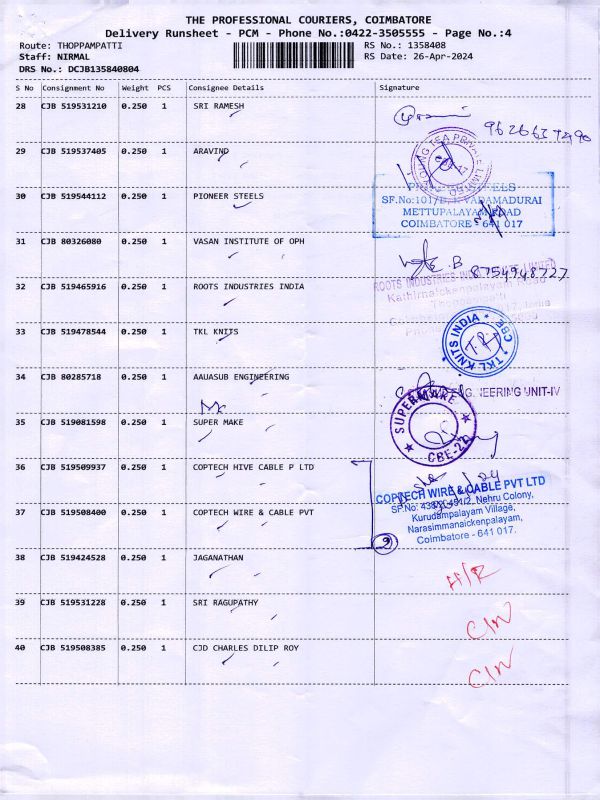 THE PROFESSIONAL COURIERS, COIMBATORE
Delivery Runsheet - PCM - Phone No.:0422-3505555 - Page No.:4
Route: THOPPAMPATTI RS No.: 1358408
Staff: NIRMAL RS Date: 26-Apr-2024
DRS No.: DCJB135840804
S No Consignment No Weight PCS Consignee Details Signature
28 CJB 519531210 0.250 1 SRI RAMESH
29 CJB 519537405 0.250 1 ARAVIND
TEA PRIVATE LIMITED
30 CJB 519544112 0.250 1 PIONEER STEELS
STEELS
SF.No:101/ VADAMADURAI
METTUPALAYAM ROAD
COIMBATORE - 641 017
31 CJB 80326080 0.250 1 VASAN INSTITUTE OF OPH
B 8754948727
32 CJB 519465916 0.250 1 ROOTS INDUSTRIES INDIA
ROOTS INDUSTRIES LIMITED
Kathirnaickenpalayam Road
33 CJB 519478544 0.250 1 TKL KNITS
TKL KNITS INDIA * CBE *
34 CJB 80285718 0.250 1 AAUASUB ENGINEERING
ENGINEERING UNIT-IV
35 CJB 519081598 0.250 1 SUPER MAKE
SUPER MAKE
CBE-22
36 CJB 519509937 0.250 1 COPTECH HIVE CABLE P LTD
37 CJB 519508400 0.250 1 COPTECH WIRE & CABLE PVT
COPTECH WIRE & CABLE PVT LTD
SF.No: 451/2, Nehru Colony,
Kurudampalayam Village,
Narasimmanaickenpalayam,
Coimbatore - 641 017.
38 CJB 519424528 0.250 1 JAGANATHAN
39 CJB 519531228 0.250 1 SRI RAGUPATHY
40 CJB 519508385 0.250 1 CJD CHARLES DILIP ROY